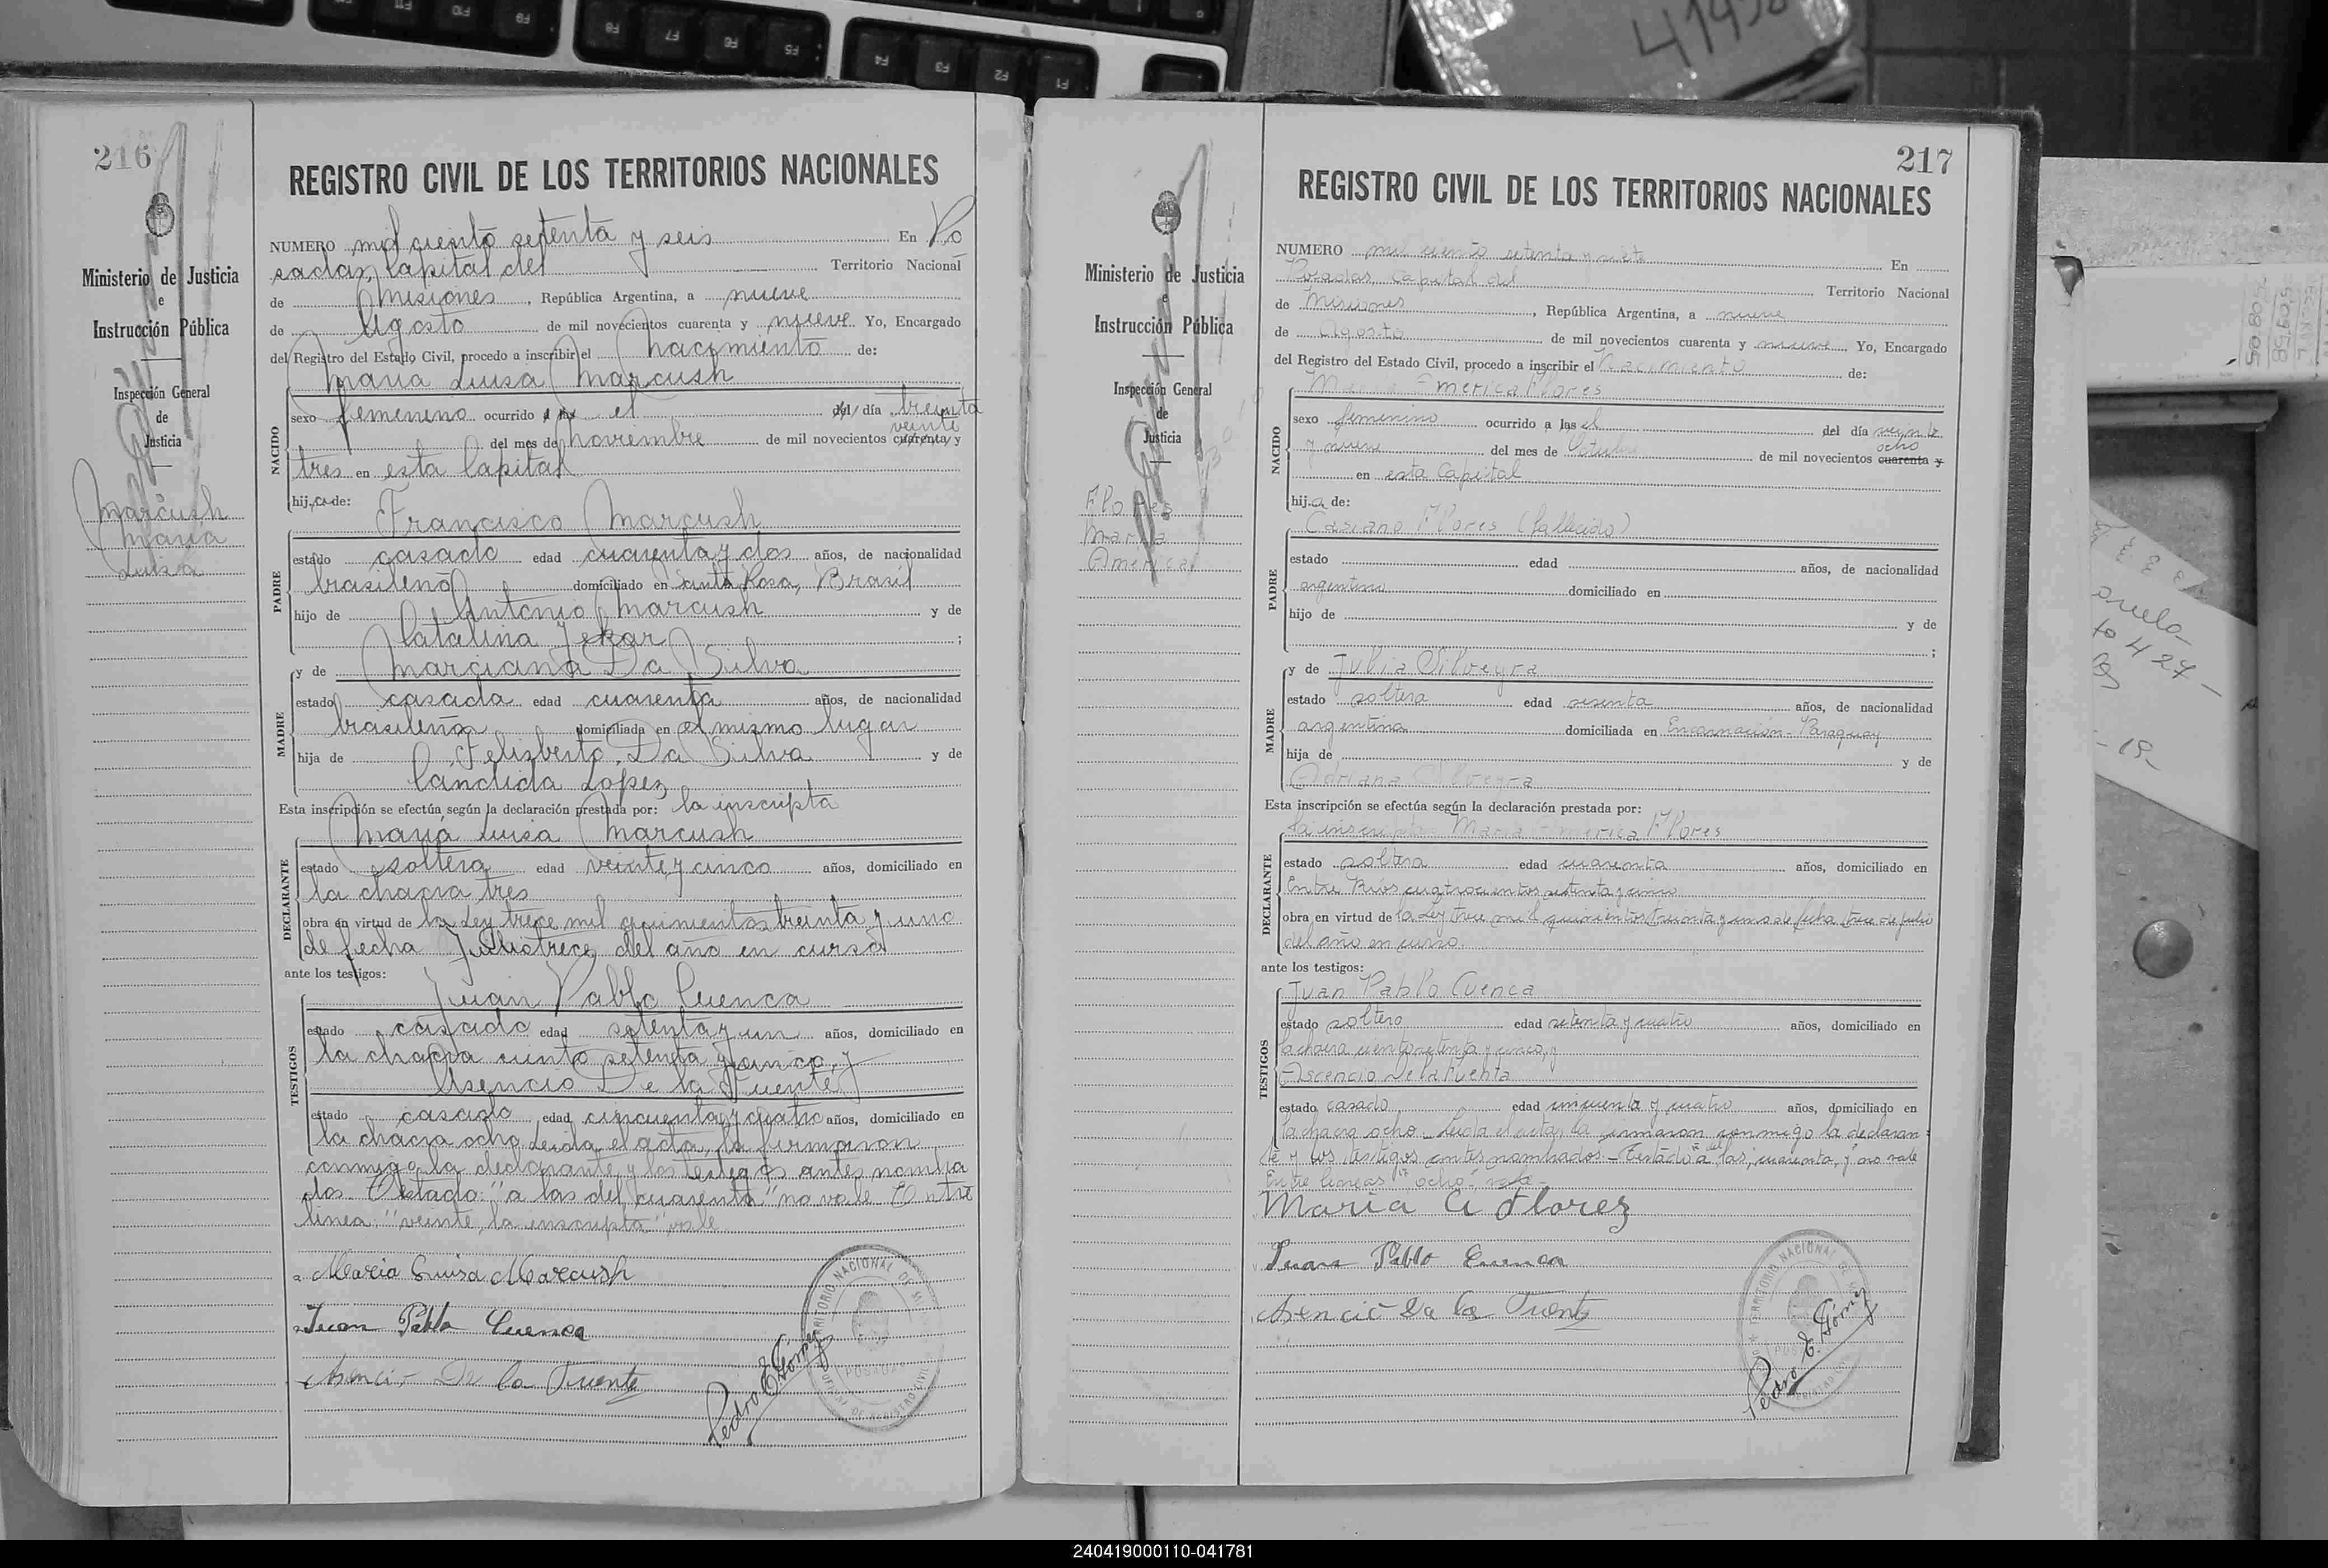 216
REGISTRO CIVIL DE LOS TERRITORIOS NACIONALES
Ministerio de Justicia
e
Instrucción Pública
Inspección General
de
Justicia
Marcush
Maria
Luisa
NUMERO mil ciento setenta y seis En Po
sadas, Capital del Territorio Nacional
de Misiones, República Argentina, a nueve
de Agosto de mil novecientos cuarenta y nueve Yo, Encargado
del Registro del Estado Civil, procedo a inscribir el nacimiento de:
Maria Luisa Marcush
NACIDO
sexo femenino ocurrido a las el del día treinta
veinte
del mes de noviembre de mil novecientos cuarenta y
tres en esta Capital
hija de:
Francisco Marcush
PADRE
estado casado edad cuarenta y dos años, de nacionalidad
brasileño domiciliado en Santa Rosa, Brasil
hijo de Antonio Marcush y de
Catalina Jekar;
y de Marciana Da Silva
MADRE
estado casada edad cuarenta años, de nacionalidad
brasileña domiciliada en el mismo lugar
hija de Felisberto Da Silva y de
Candida Lopez
Esta inscripción se efectúa según la declaración prestada por: la inscripta
Maria Luisa Marcush
DECLARANTE
estado soltera edad veinte y cinco años, domiciliado en
la chacra tres
obra en virtud de la Ley trece mil quinientos treinta y uno
de fecha Julio trece del año en curso
ante los testigos:
Juan Pablo Cuenca
TESTIGOS
estado casado edad setenta y un años, domiciliado en
la chacra ciento setenta y cinco, y
Asencio De la Fuente
estado casado edad cincuenta y cuatro años, domiciliado en
la chacra ocho. Leida el acta, la firmaron
conmigo la declarante y los testigos antes nombra
dos. Testado: "a las del cuarenta" no vale. Entre
linea: "veinte, la inscripta" vale
Maria Luisa Marcush
Juan Pablo Cuenca
Asencio De la Fuente
Pedro E. Gomez
TERRITORIO NACIONAL DE MI
POSADAS
DE REGISTRO CIVIL
217
REGISTRO CIVIL DE LOS TERRITORIOS NACIONALES
Ministerio de Justicia
e
Instrucción Pública
Inspección General
de
Justicia
Flores
Maria
America
NUMERO mil ciento setenta y siete En
Posadas, Capital del Territorio Nacional
de Misiones, República Argentina, a nueve
de Agosto de mil novecientos cuarenta y nueve Yo, Encargado
del Registro del Estado Civil, procedo a inscribir el Nacimiento de:
Maria America Flores
NACIDO
sexo femenino ocurrido a las el del día veinte
ocho
y nueve del mes de Octubre de mil novecientos cuarenta y
en esta Capital
hija de:
Casiano Flores (fallecido)
PADRE
estado edad años, de nacionalidad
argentino domiciliado en
hijo de y de
;
y de Julia Silveyra
MADRE
estado soltera edad sesenta años, de nacionalidad
argentina domiciliada en Encarnación - Paraguay
hija de y de
Adriana Silveyra
Esta inscripción se efectúa según la declaración prestada por:
la inscripta Maria America Flores
DECLARANTE
estado soltera edad cuarenta años, domiciliado en
Entre Rios cuatrocientos setenta y cinco
obra en virtud de la Ley trece mil quinientos treinta y uno de fecha trece de julio
del año en curso.
ante los testigos:
Juan Pablo Cuenca
TESTIGOS
estado soltero edad setenta y cuatro años, domiciliado en
la chacra ciento setenta y cinco, y
Ascencio De la Fuente
estado casado edad cincuenta y cuatro años, domiciliado en
la chacra ocho. Leida el acta, la firmaron conmigo la declaran
te y los testigos antes nombrados - Testado "a las, del cuarenta, y" no vale
Entre lineas "ocho" vale -
Maria A Florez
Juan Pablo Cuenca
Asencio De la Fuente
Pedro E. Gómez
TERRITORIO NACIONAL DE M
POSADAS
REGISTRO CIVIL
240419000110-041781